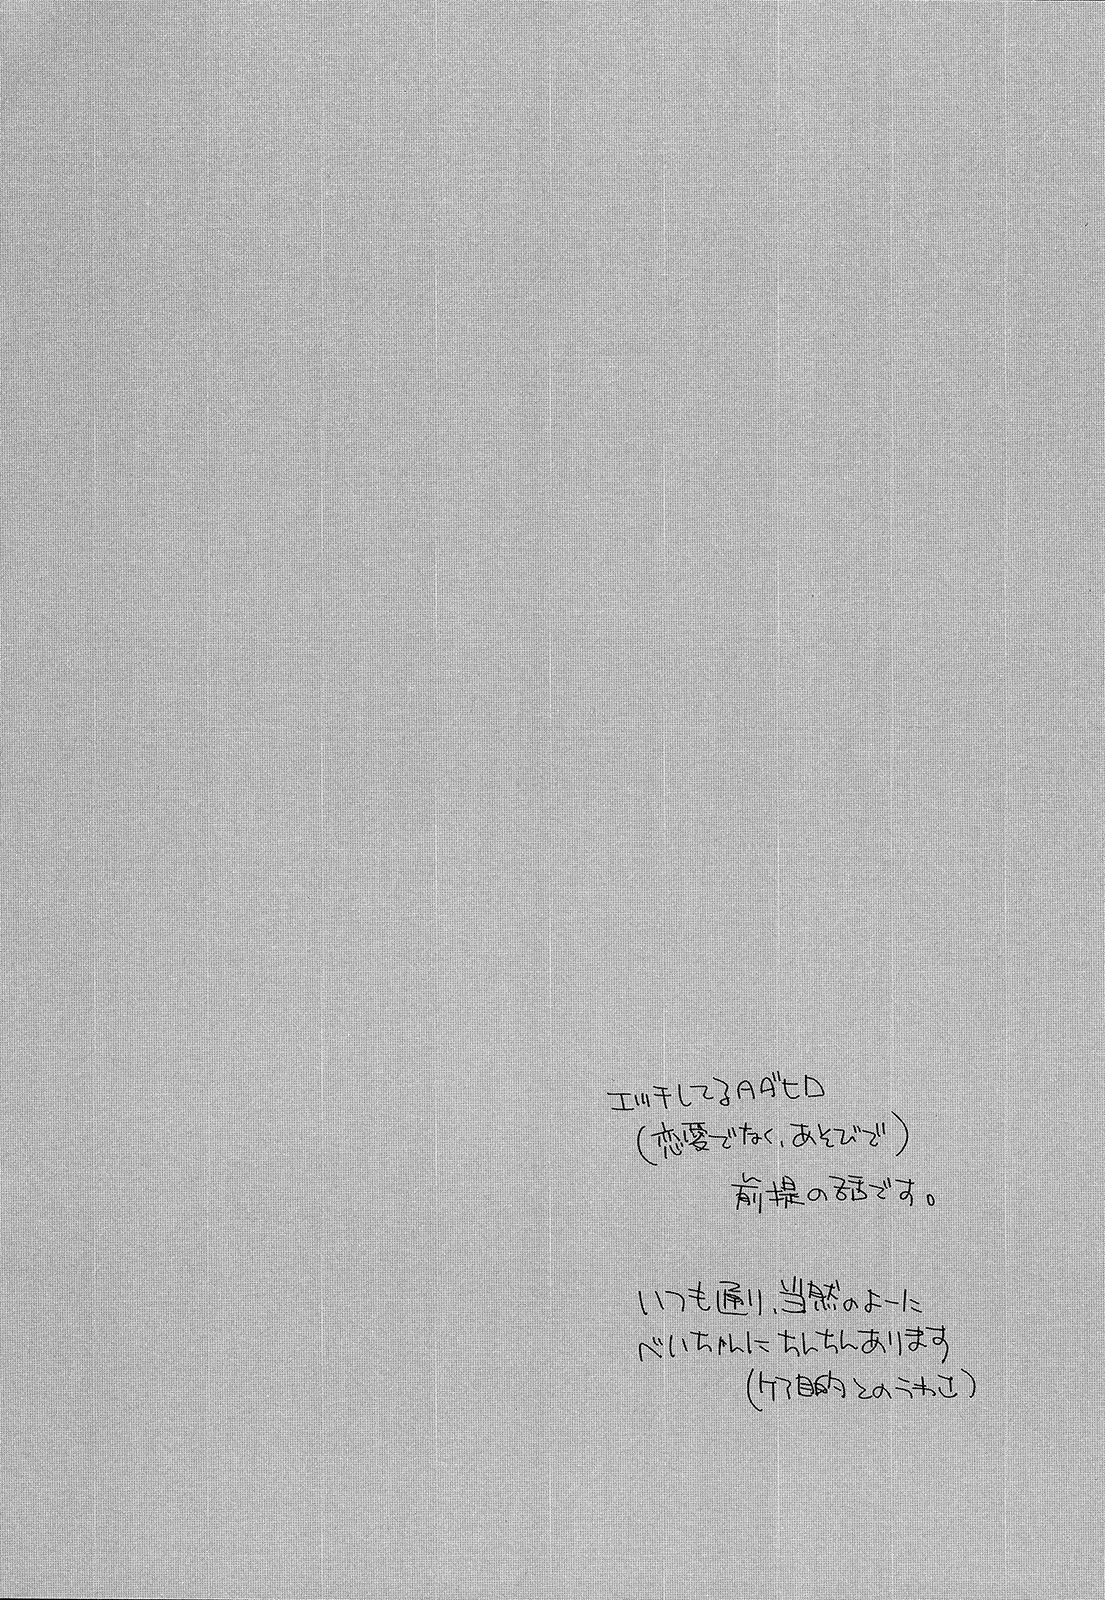 エッチしてるAダヒロ
(恋愛でなく、あそびで)
前提の話です。
いつも通り、当然のよーに
べいちゃんにちんちんあります
(ケア目的とのうわさ)